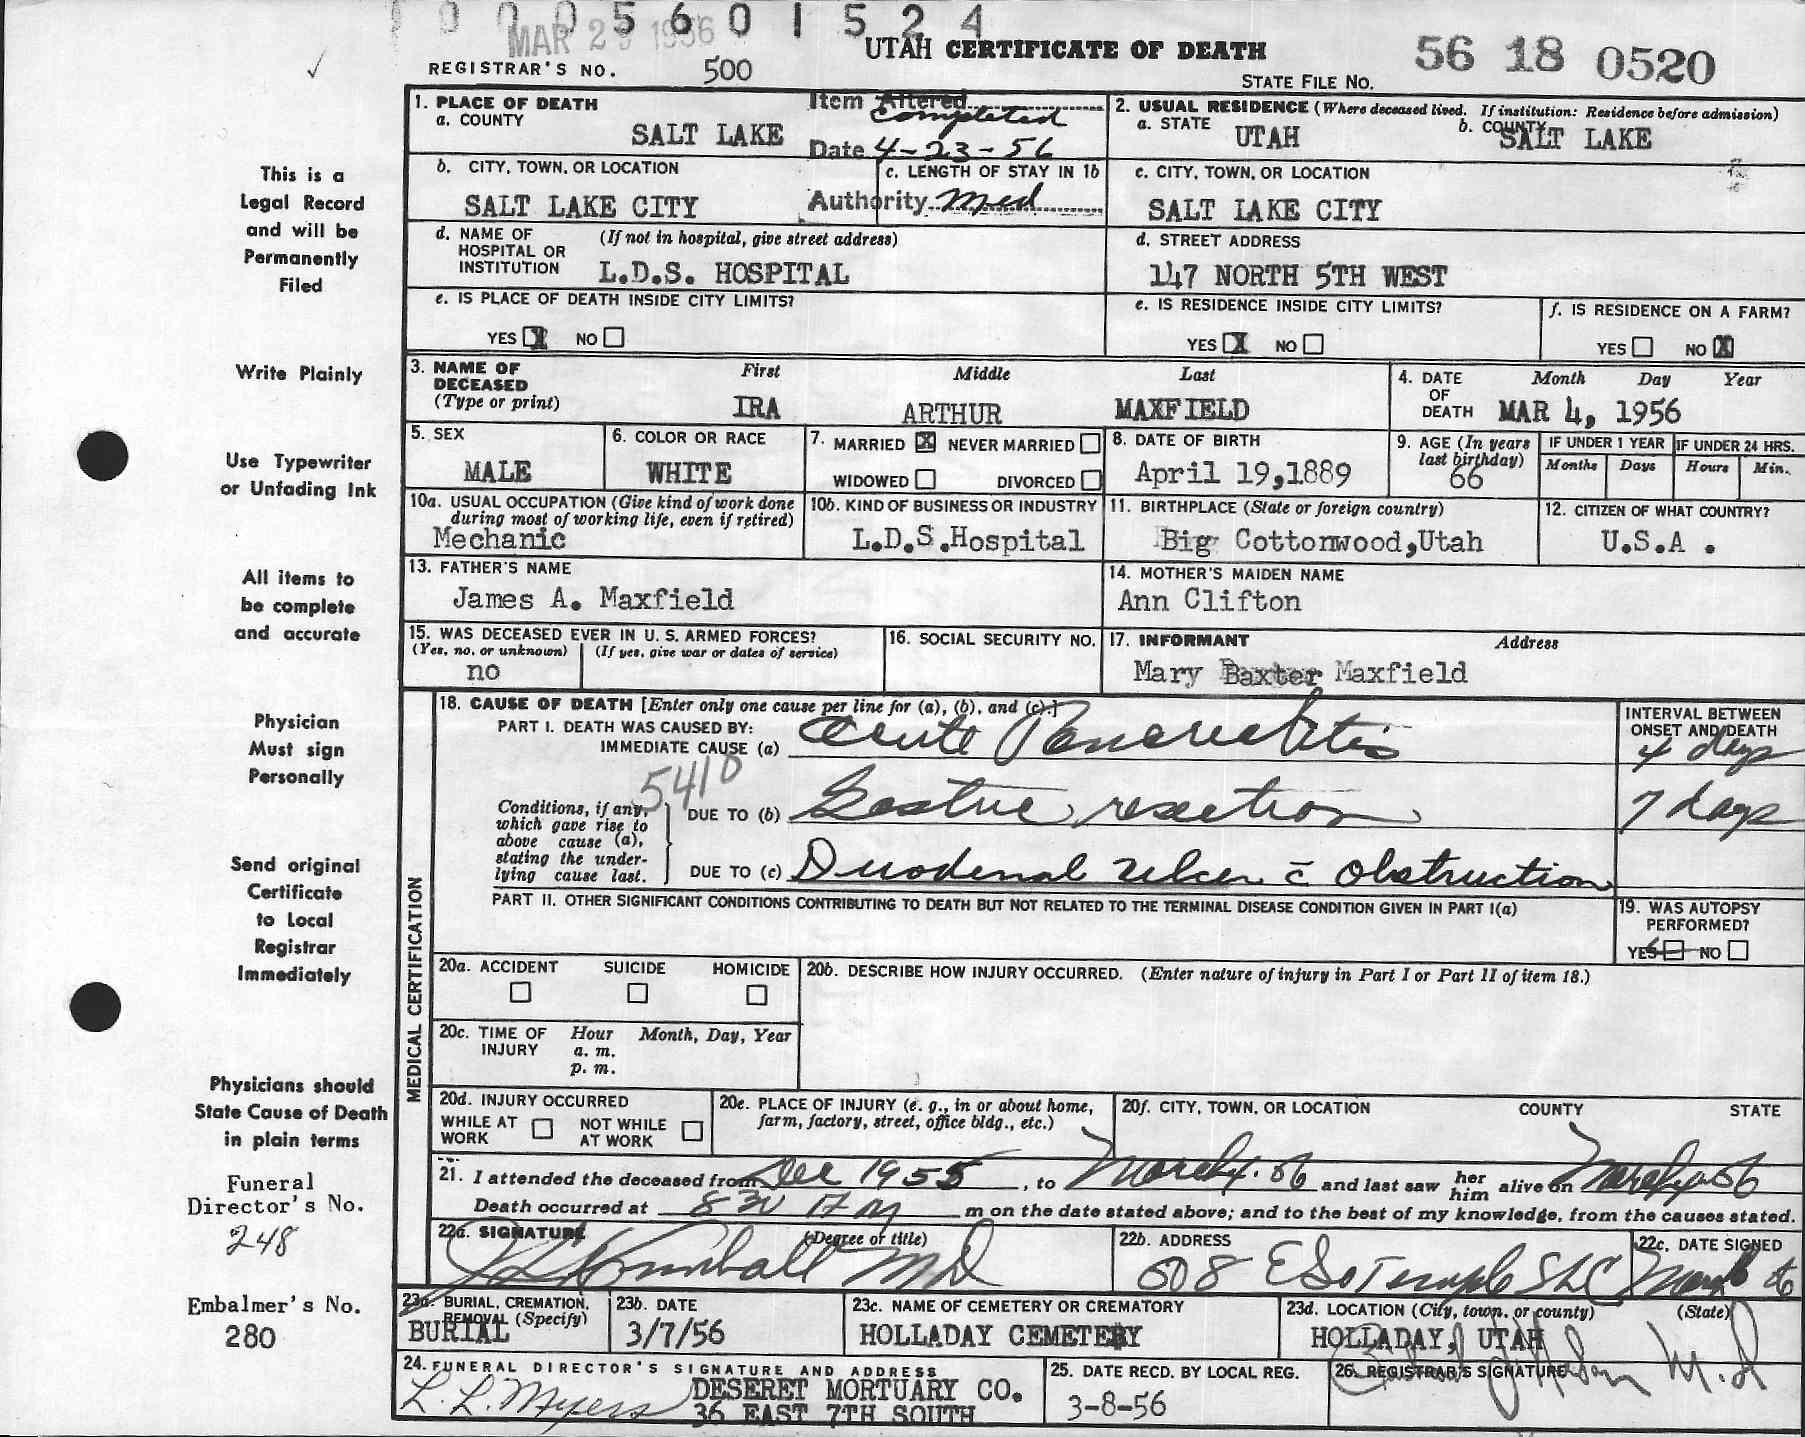 0 0 0 5 6 0 1 5 2 4
MAR 2 1956
REGISTRAR'S NO. 500
UTAH CERTIFICATE OF DEATH
STATE FILE NO. 56 18 0520
1. PLACE OF DEATH
a. COUNTY
SALT LAKE
Item Altered
Completed
Date 4-23-56
Authority Med
2. USUAL RESIDENCE (Where deceased lived. If institution: Residence before admission)
a. STATE UTAH b. COUNTY SALT LAKE
b. CITY, TOWN, OR LOCATION
SALT LAKE CITY
c. LENGTH OF STAY IN 1b
c. CITY, TOWN, OR LOCATION
SALT LAKE CITY
d. NAME OF HOSPITAL OR INSTITUTION (If not in hospital, give street address)
L.D.S. HOSPITAL
d. STREET ADDRESS
147 NORTH 5TH WEST
e. IS PLACE OF DEATH INSIDE CITY LIMITS?
YES X NO
e. IS RESIDENCE INSIDE CITY LIMITS?
YES X NO
f. IS RESIDENCE ON A FARM?
YES NO X
3. NAME OF DECEASED (Type or print)
First Middle Last
IRA ARTHUR MAXFIELD
4. DATE OF DEATH Month Day Year
MAR 4, 1956
5. SEX
MALE
6. COLOR OR RACE
WHITE
7. MARRIED X NEVER MARRIED
WIDOWED DIVORCED
8. DATE OF BIRTH
April 19,1889
9. AGE (In years last birthday)
66
IF UNDER 1 YEAR
Months Days
IF UNDER 24 HRS.
Hours Min.
10a. USUAL OCCUPATION (Give kind of work done during most of working life, even if retired)
Mechanic
10b. KIND OF BUSINESS OR INDUSTRY
L.D.S.Hospital
11. BIRTHPLACE (State or foreign country)
Big Cottonwood,Utah
12. CITIZEN OF WHAT COUNTRY?
U.S.A .
13. FATHER'S NAME
James A. Maxfield
14. MOTHER'S MAIDEN NAME
Ann Clifton
15. WAS DECEASED EVER IN U. S. ARMED FORCES?
(Yes, no, or unknown) (If yes, give war or dates of service)
no
16. SOCIAL SECURITY NO.
17. INFORMANT Address
Mary Baxter Maxfield
18. CAUSE OF DEATH [Enter only one cause per line for (a), (b), and (c).]
PART I. DEATH WAS CAUSED BY:
IMMEDIATE CAUSE (a) Acute Pancreatitis
INTERVAL BETWEEN ONSET AND DEATH
4 days
5410
Conditions, if any, which gave rise to above cause (a), stating the underlying cause last.
DUE TO (b) Gastric resection
7 days
DUE TO (c) Duodenal Ulcer c̄ Obstruction
PART II. OTHER SIGNIFICANT CONDITIONS CONTRIBUTING TO DEATH BUT NOT RELATED TO THE TERMINAL DISEASE CONDITION GIVEN IN PART I(a)
19. WAS AUTOPSY PERFORMED?
YES NO
20a. ACCIDENT SUICIDE HOMICIDE
20b. DESCRIBE HOW INJURY OCCURRED. (Enter nature of injury in Part I or Part II of item 18.)
20c. TIME OF INJURY Hour Month, Day, Year
a. m.
p. m.
20d. INJURY OCCURRED
WHILE AT WORK NOT WHILE AT WORK
20e. PLACE OF INJURY (e. g., in or about home, farm, factory, street, office bldg., etc.)
20f. CITY, TOWN, OR LOCATION COUNTY STATE
21. I attended the deceased from Dec 1955, to March 4-56 and last saw her him alive on March 4-56
Death occurred at 8 30 A M m on the date stated above; and to the best of my knowledge, from the causes stated.
22a. SIGNATURE (Degree or title)
Kimball MD
22b. ADDRESS
508 E So Temple SLC
22c. DATE SIGNED
March 56
23a. BURIAL, CREMATION, REMOVAL (Specify)
BURIAL
23b. DATE
3/7/56
23c. NAME OF CEMETERY OR CREMATORY
HOLLADAY CEMETERY
23d. LOCATION (City, town, or county) (State)
HOLLADAY, UTAH
24. FUNERAL DIRECTOR'S SIGNATURE AND ADDRESS
L. L. Myers DESERET MORTUARY CO.
36 EAST 7TH SOUTH
25. DATE RECD. BY LOCAL REG.
3-8-56
26. REGISTRAR'S SIGNATURE
M.D
MEDICAL CERTIFICATION
This is a
Legal Record
and will be
Permanently
Filed
Write Plainly
Use Typewriter
or Unfading Ink
All items to
be complete
and accurate
Physician
Must sign
Personally
Send original
Certificate
to Local
Registrar
Immediately
Physicians should
State Cause of Death
in plain terms
Funeral
Director's No.
248
Embalmer's No.
280